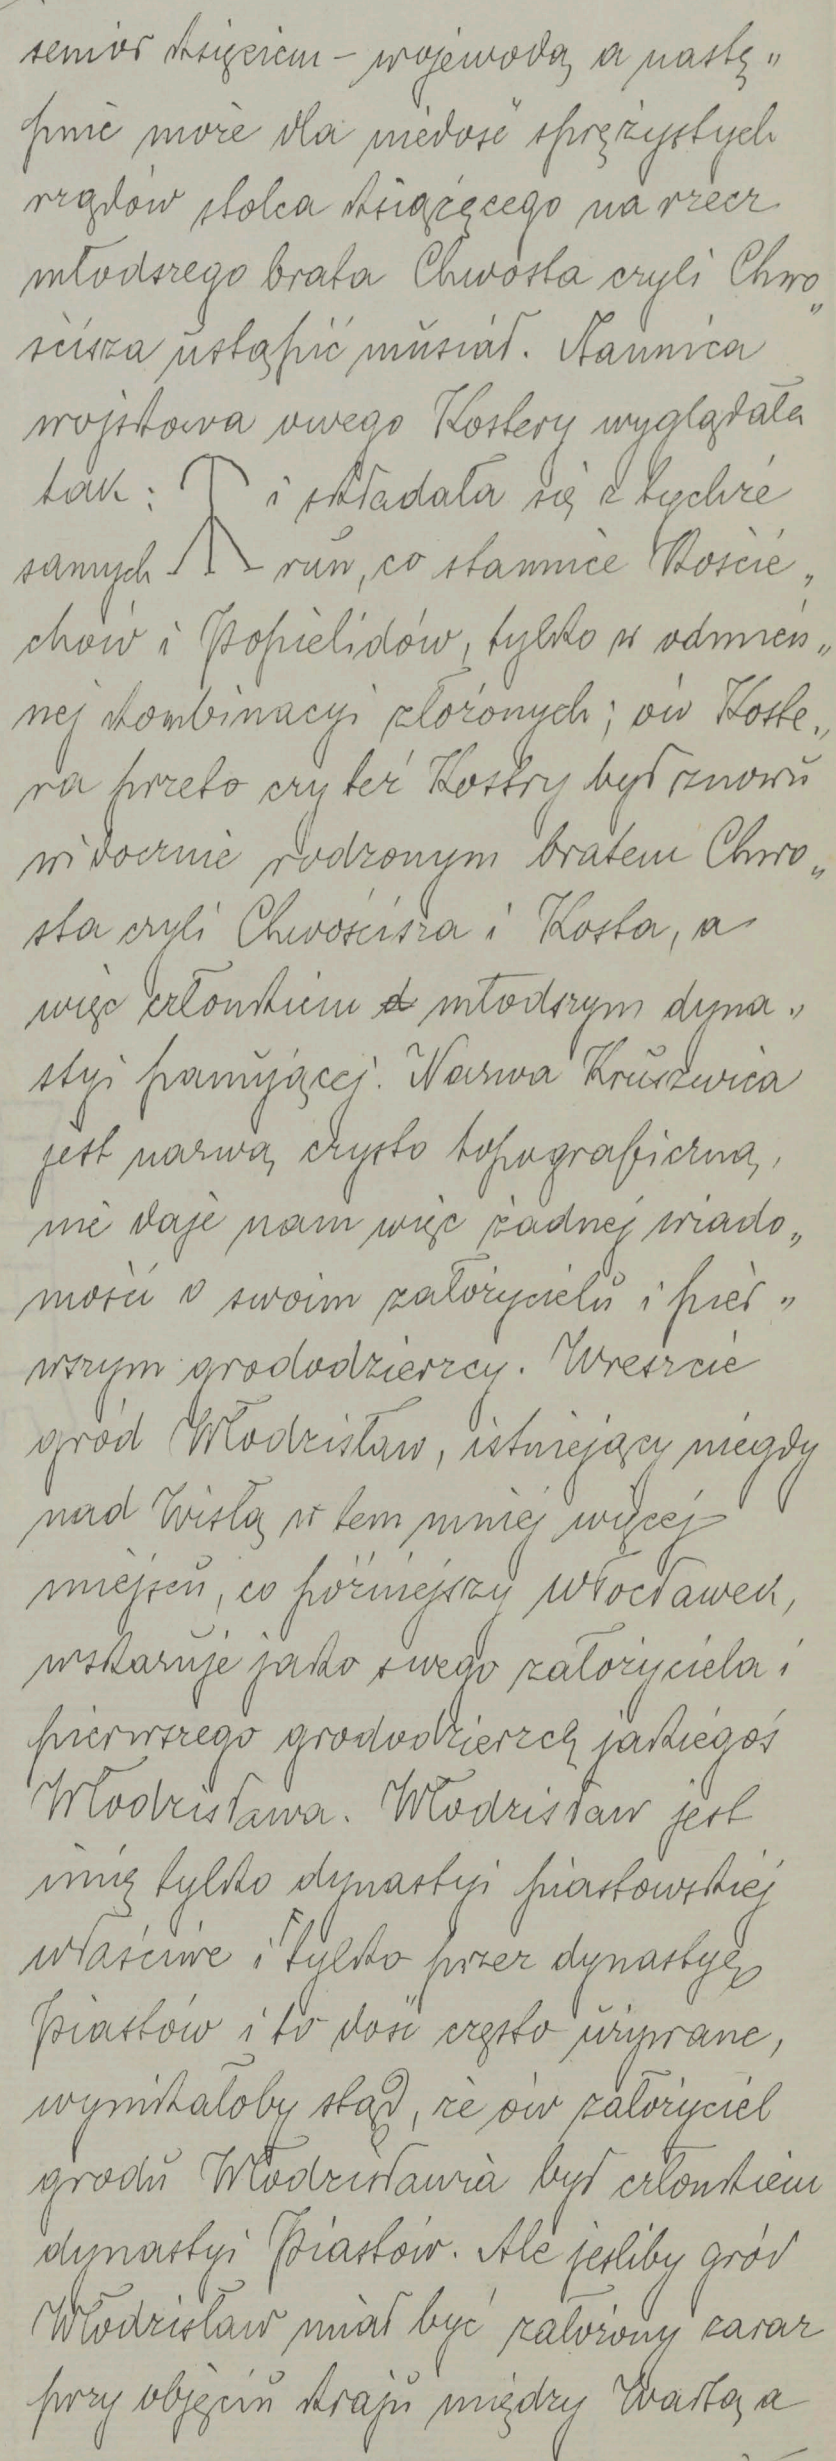 senior księciem – wojewodą a nastę„
pnie może dla niedość sprężystych
rządów stolca książęcego na rzecz
młodszego brata Chwosta czyli Chwo„
ścisza ustąpić musiał. Stannica
wojskowa owego Kostery wyglądała
tak: i składała się z tychże
samych run, co stannice Koście„
chów i Popielidów, tylko w odmien„
nej kombinacyi złożonych; ów Koste„
ra przeto czy też Kostry był znowu
widocznie rodzonym bratem Chwo„
sta czyli Chwościsza i Kosta, a
więc członkiem d młodszym dyna„
styi panującej. Nazwa Kruszwica
jest nazwą czysto topograficzną,
nie daje nam więc żadnej wiado„
mości o swoim założycielu i pier„
wszym grododzierzcy. Wreszcie
gród Włodzisław, istniejący niegdy
nad Wisłą w tem mniej więcej
miejscu, co późniejszy Włocławek,
wskazuje jako swego założyciela i
pierwszego grododzierzcę jakiegoś
Włodzisława. Włodzisław jest
imię tylko dynastyi piastowskiej
właściwe i tylko przez dynastyę
Piastów i to dość często używane,
wynikałoby stąd, że ów założyciel
grodu Włodzisławia był członkiem
dynastyi Piastów. Ale jeśliby gród
Włodzisław miał być założony zaraz
przy objęciu kraju między Wartą a